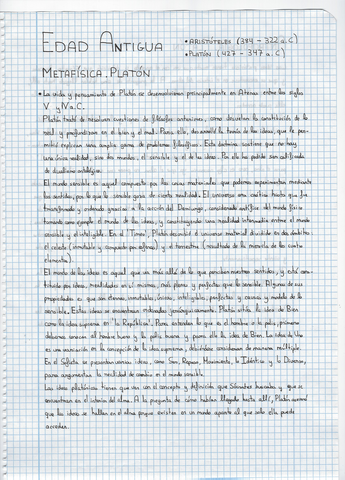 EDAD ANTIGUA
• ARISTÓTELES (384 - 322 a.C)
• PLATÓN (427 - 347 a.C)
METAFÍSICA. PLATÓN
• La vida y pensamiento de Platón se desenvolvieron principalmente en Atenas entre los siglos
V y IV a.C.
Platón trató de resolver cuestiones de filósofos anteriores, como descubrir la constitución de lo
real y profundizar en el bien y el mal. Para ello, desarrolló la teoría de las ideas, que le per-
mitió explicar una amplia gama de problemas filosóficos. Esta doctrina sostiene que no hay
una única realidad, sino dos mundos, el sensible y el de las ideas. Por ello ha podido ser calificada
de dualismo ontológico.
El mundo sensible es aquel compuesto por las cosas materiales que podemos experimentar mediante
los sentidos, por lo que lo sensible goza de cierta realidad. El universo era caótico hasta que fue
transformado y ordenado gracias a la acción del Demiurgo, considerado artífice del mundo físico
tomando como ejemplo el mundo de las ideas y constituyendo una realidad intermedia entre el mundo
sensible y el inteligible. En el "Timeo", Platón describió el universo material dividido en dos ámbitos:
el celeste (inmutable y compuesto por esferas) y el terrestre (resultado de la mezcla de los cuatro
elementos).
El mundo de las ideas es aquel que va más allá de lo que perciben nuestros sentidos, y está cons-
tituido por ideas, realidades en sí mismas, más plenas y perfectas que lo sensible. Algunas de sus
propiedades es que son eternas, inmutables, únicas, inteligibles, perfectas y causas y modelo de lo
sensible. Estas ideas se encuentran ordenadas jerárquicamente. Platón sitúa la idea de Bien
como la idea suprema en "la República". Para entender lo que es el hombre o la polis, primero
debemos conocer al hombre bueno y la polis buena y para ello la idea de Bien. La idea de Uno
es una variación en la concepción de la idea suprema, debiéndose considerar de manera múltiple.
En el Sofista se presentan varias ideas, como Ser, Reposo, Movimiento, lo Idéntico y lo Diverso,
para argumentar la realidad de cambio en el mundo sensible.
Las ideas platónicas tienen que ver con el concepto y definición que Sócrates buscaba y que se
encuentran en el interior del alma. A la pregunta de cómo habían llegado hasta allí, Platón
que las ideas se hallan en el alma porque existen en un mundo aparte al que solo ella puede
acceder.